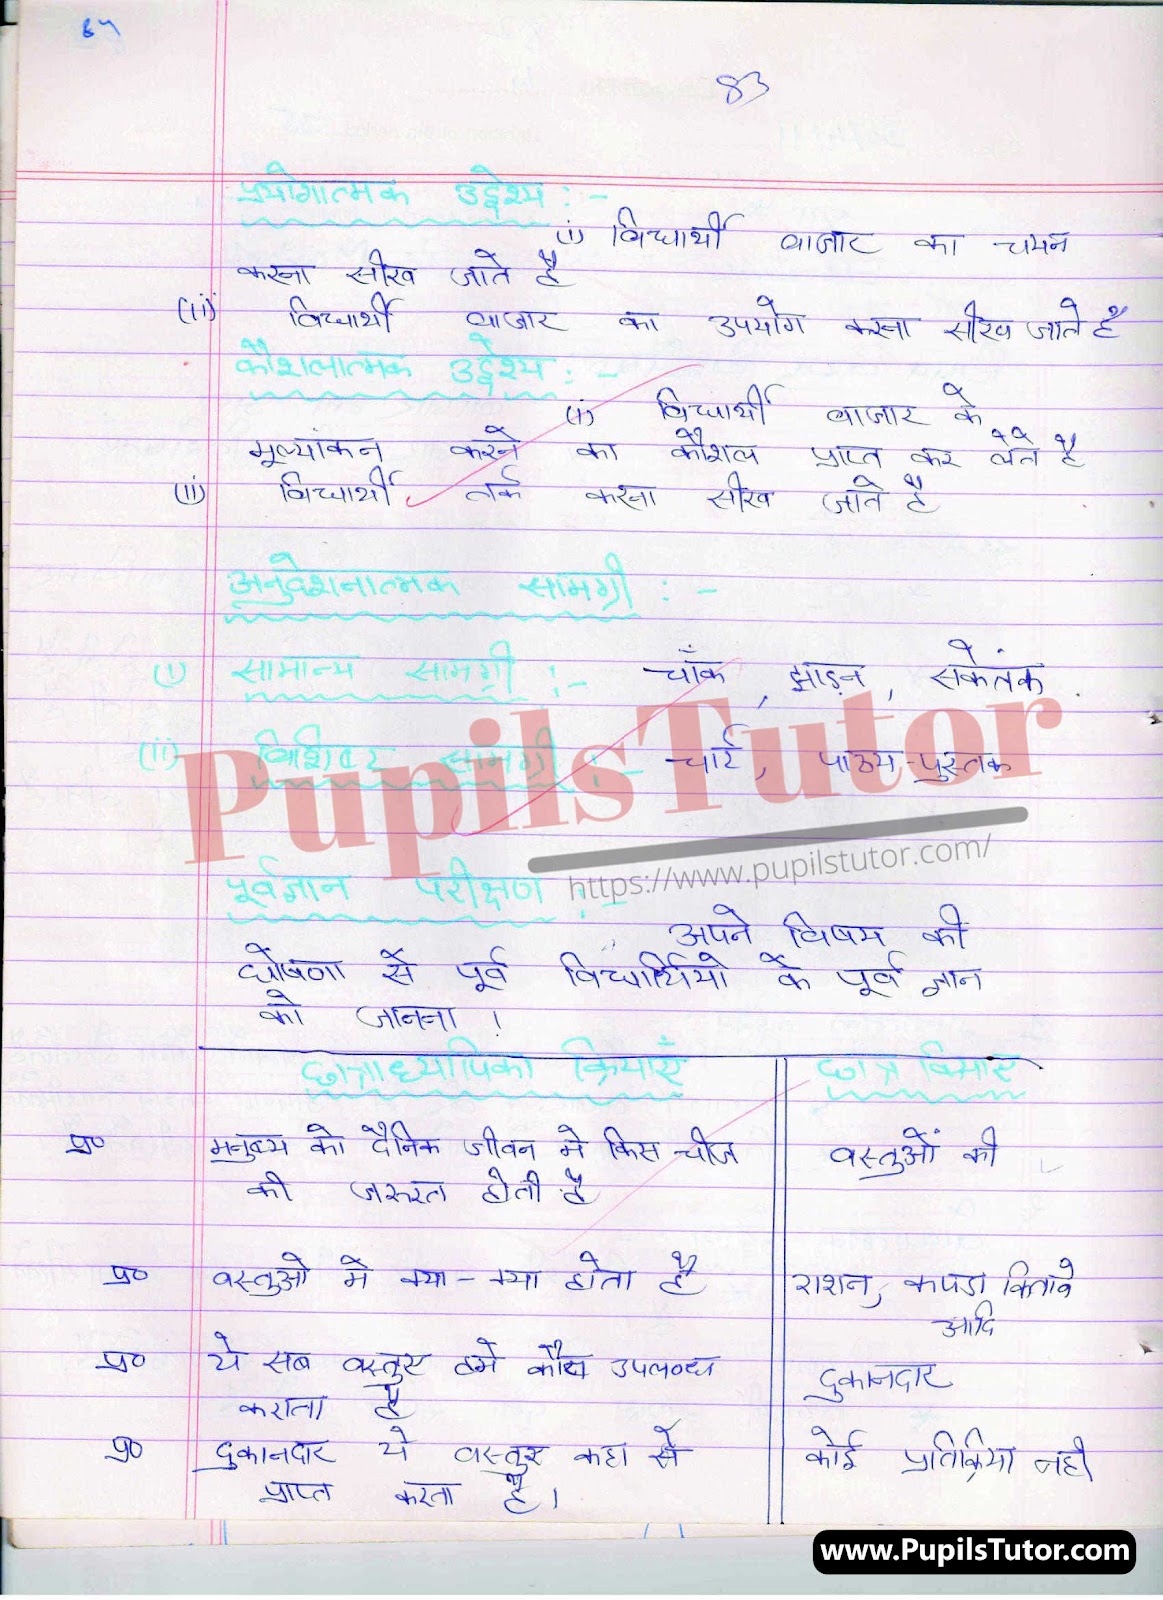 83
प्रयोगात्मक उद्देश्य :-
(i) विद्यार्थी बाजार का चयन
करना सीख जाते है
(ii) विद्यार्थी बाजार का उपयोग करना सीख जाते है
कौशलात्मक उद्देश्य :-
(i) विद्यार्थी बाजार के
मूल्यांकन करने का कौशल प्राप्त कर लेते है
(ii) विद्यार्थी तर्क करना सीख जाते है
अनुदेशनात्मक सामग्री :-
(i) सामान्य सामग्री :- चाँक, झाड़न, सकेतंक
(ii) विशिष्ट सामग्री :- चार्ट, पाठ्य-पुस्तक
PupilsTutor
https://www.pupilstutor.com/
पूर्वज्ञान परीक्षण :-
अपने विषय की
घोषणा से पूर्व विद्यार्थियो के पूर्व ज्ञान
को जानना।
छात्राध्यापिका क्रियाएँ छात्र क्रियाएं
प्र० मनुष्य को दैनिक जीवन मे किस चीज वस्तुओं की
की जरूरत होती है
प्र० वस्तुओ मे क्या-क्या होता है राशन, कपडा किताबे
आदि
प्र० ये सब वस्तुए हमे कौन उपलब्ध
कराता है दुकानदार
प्र० दुकानदार ये वस्तुए कहा से कोई प्रतिक्रिया नही
प्राप्त करता है।
www.PupilsTutor.com